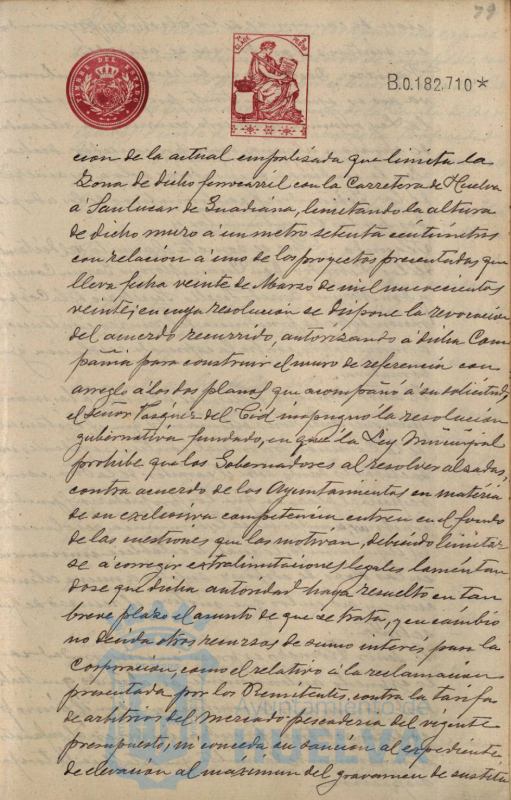 79
TIMBRE DEL ESTADO
B.0.182,710 *
cion de la actual empalizada que limita la
Zona de dicho ferrocarril con la Carretera de Huelva
á Sanlucar de Guadiana, limitando la altura
de dicho muro á un metro setenta centímetros
con relación á uno de los proyectos presentados que
lleva fecha veinte de Marzo de mil nuevecientos
veinte; en cuya resolución se dispone la revocación
del acuerdo recurrido, autorizando á dicha Com
pañia para construir el muro de referencia con
arreglo á los dos planos que acompañó á su solicitud,
el Señor Vázquez del Cid impugno la resolución
gubernativa fundado, en que la Ley Municipal
prohibe que los Gobernadores al resolver alzadas,
contra acuerdo de los Ayuntamientos en matéria
de su exclusiva competencia entren en el fondo
de las cuestiones que las motivan, debiendo limitar
se á corregir extralimitaciones legales lamentan
dose que dicha autoridad haya resuelto en tan
breve plazo el asunto de que se trata, y en cambio
no decida otros recursos de sumo interés para la
Corporación, como el relativo á la reclamación
presentada por los Remitentes, contra la tarifa
de arbitrios del Mercado-pescaderia del vigente
presupuesto, ni conceda su sanción al expediente
de elevación al máximun del gravamen de sustitu
Ayuntamiento de
HUELVA